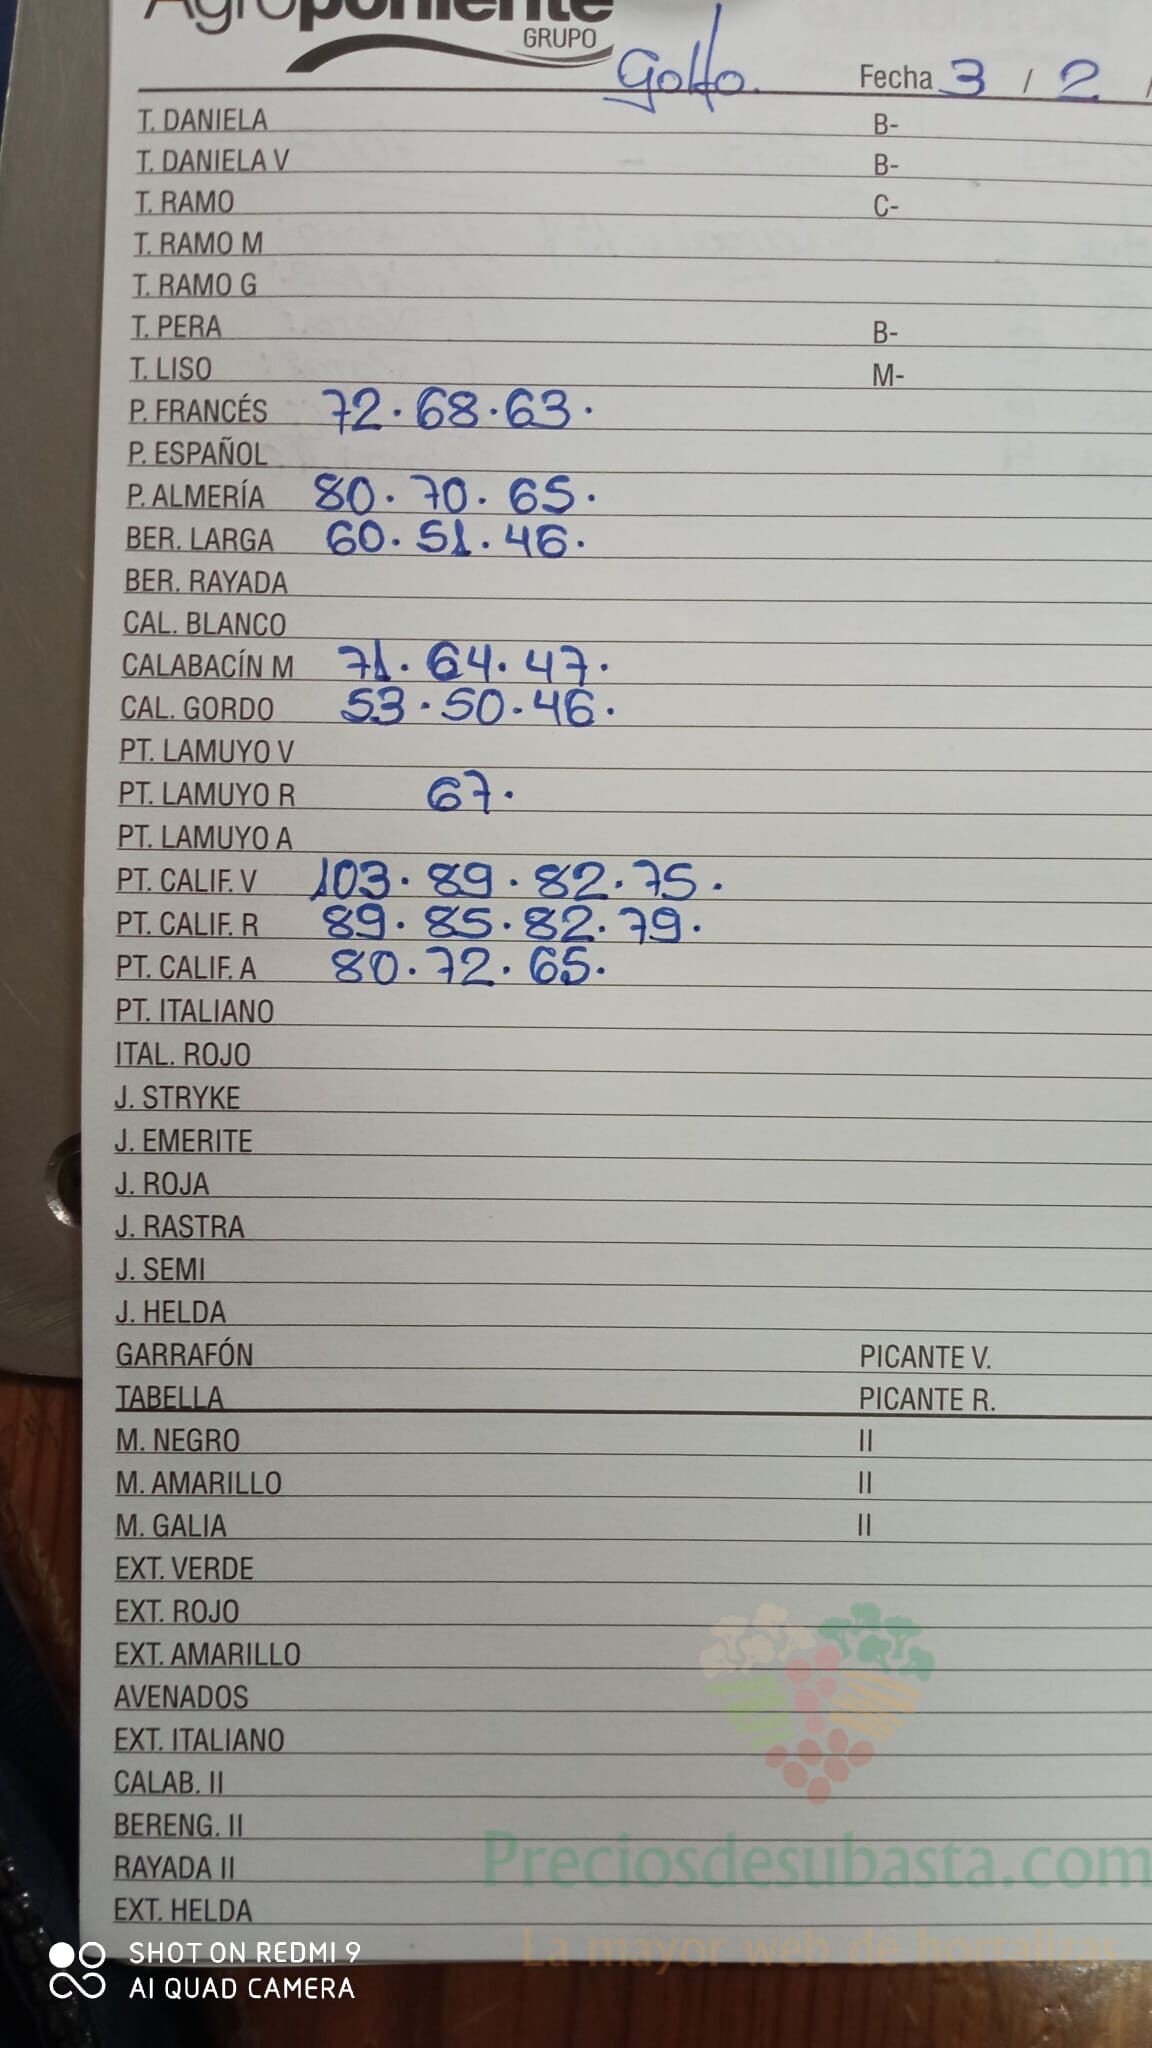 Agroponiente
GRUPO
Golfo. Fecha 3 / 2 /
T. DANIELA B-
T. DANIELA V B-
T. RAMO C-
T. RAMO M
T. RAMO G
T. PERA B-
T. LISO M-
P. FRANCÉS 72. 68. 63.
P. ESPAÑOL
P. ALMERÍA 80. 70. 65.
BER. LARGA 60. 51. 46.
BER. RAYADA
CAL. BLANCO
CALABACÍN M 71. 64. 47.
CAL. GORDO 53. 50. 46.
PT. LAMUYO V
PT. LAMUYO R 67.
PT. LAMUYO A
PT. CALIF. V 103. 89. 82. 75.
PT. CALIF. R 89. 85. 82. 79.
PT. CALIF. A 80. 72. 65.
PT. ITALIANO
ITAL. ROJO
J. STRYKE
J. EMERITE
J. ROJA
J. RASTRA
J. SEMI
J. HELDA
GARRAFÓN PICANTE V.
TABELLA PICANTE R.
M. NEGRO II
M. AMARILLO II
M. GALIA II
EXT. VERDE
EXT. ROJO
EXT. AMARILLO
AVENADOS
EXT. ITALIANO
CALAB. II
BERENG. II
Preciosdesubasta.com
RAYADA II
EXT. HELDA
La mayor web de hortalizas
SHOT ON REDMI 9
AI QUAD CAMERA